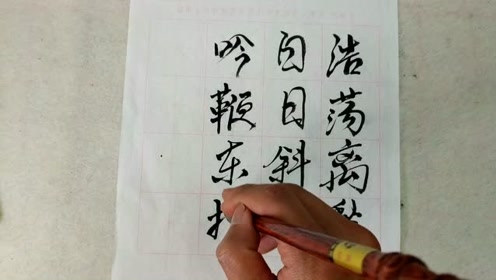 浩荡离
白日斜
吟鞭东